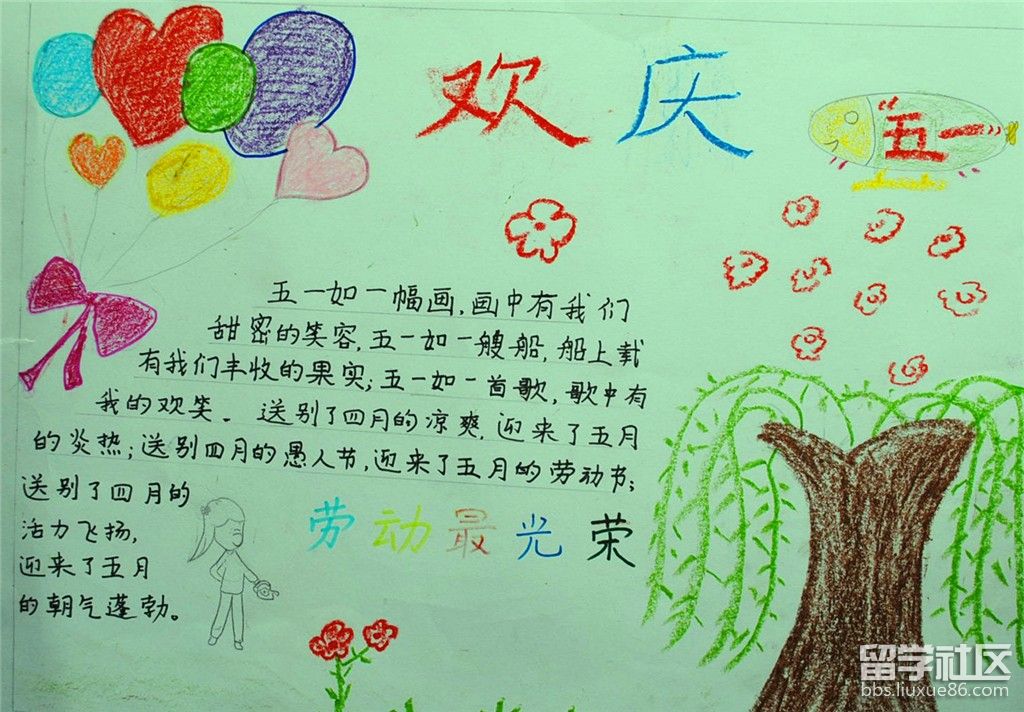 欢庆“五一”
五一如一幅画,画中有我们
甜密的笑容,五一如一艘船,船上载
有我们丰收的果实;五一如一首歌,歌中有
我的欢笑。送别了四月的凉爽,迎来了五月
的炎热;送别四月的愚人节,迎来了五月的劳动节;
送别了四月的
活力飞扬,
迎来了五月
的朝气蓬勃。
劳动最光荣
留学社区
bbs.liuxue86.com